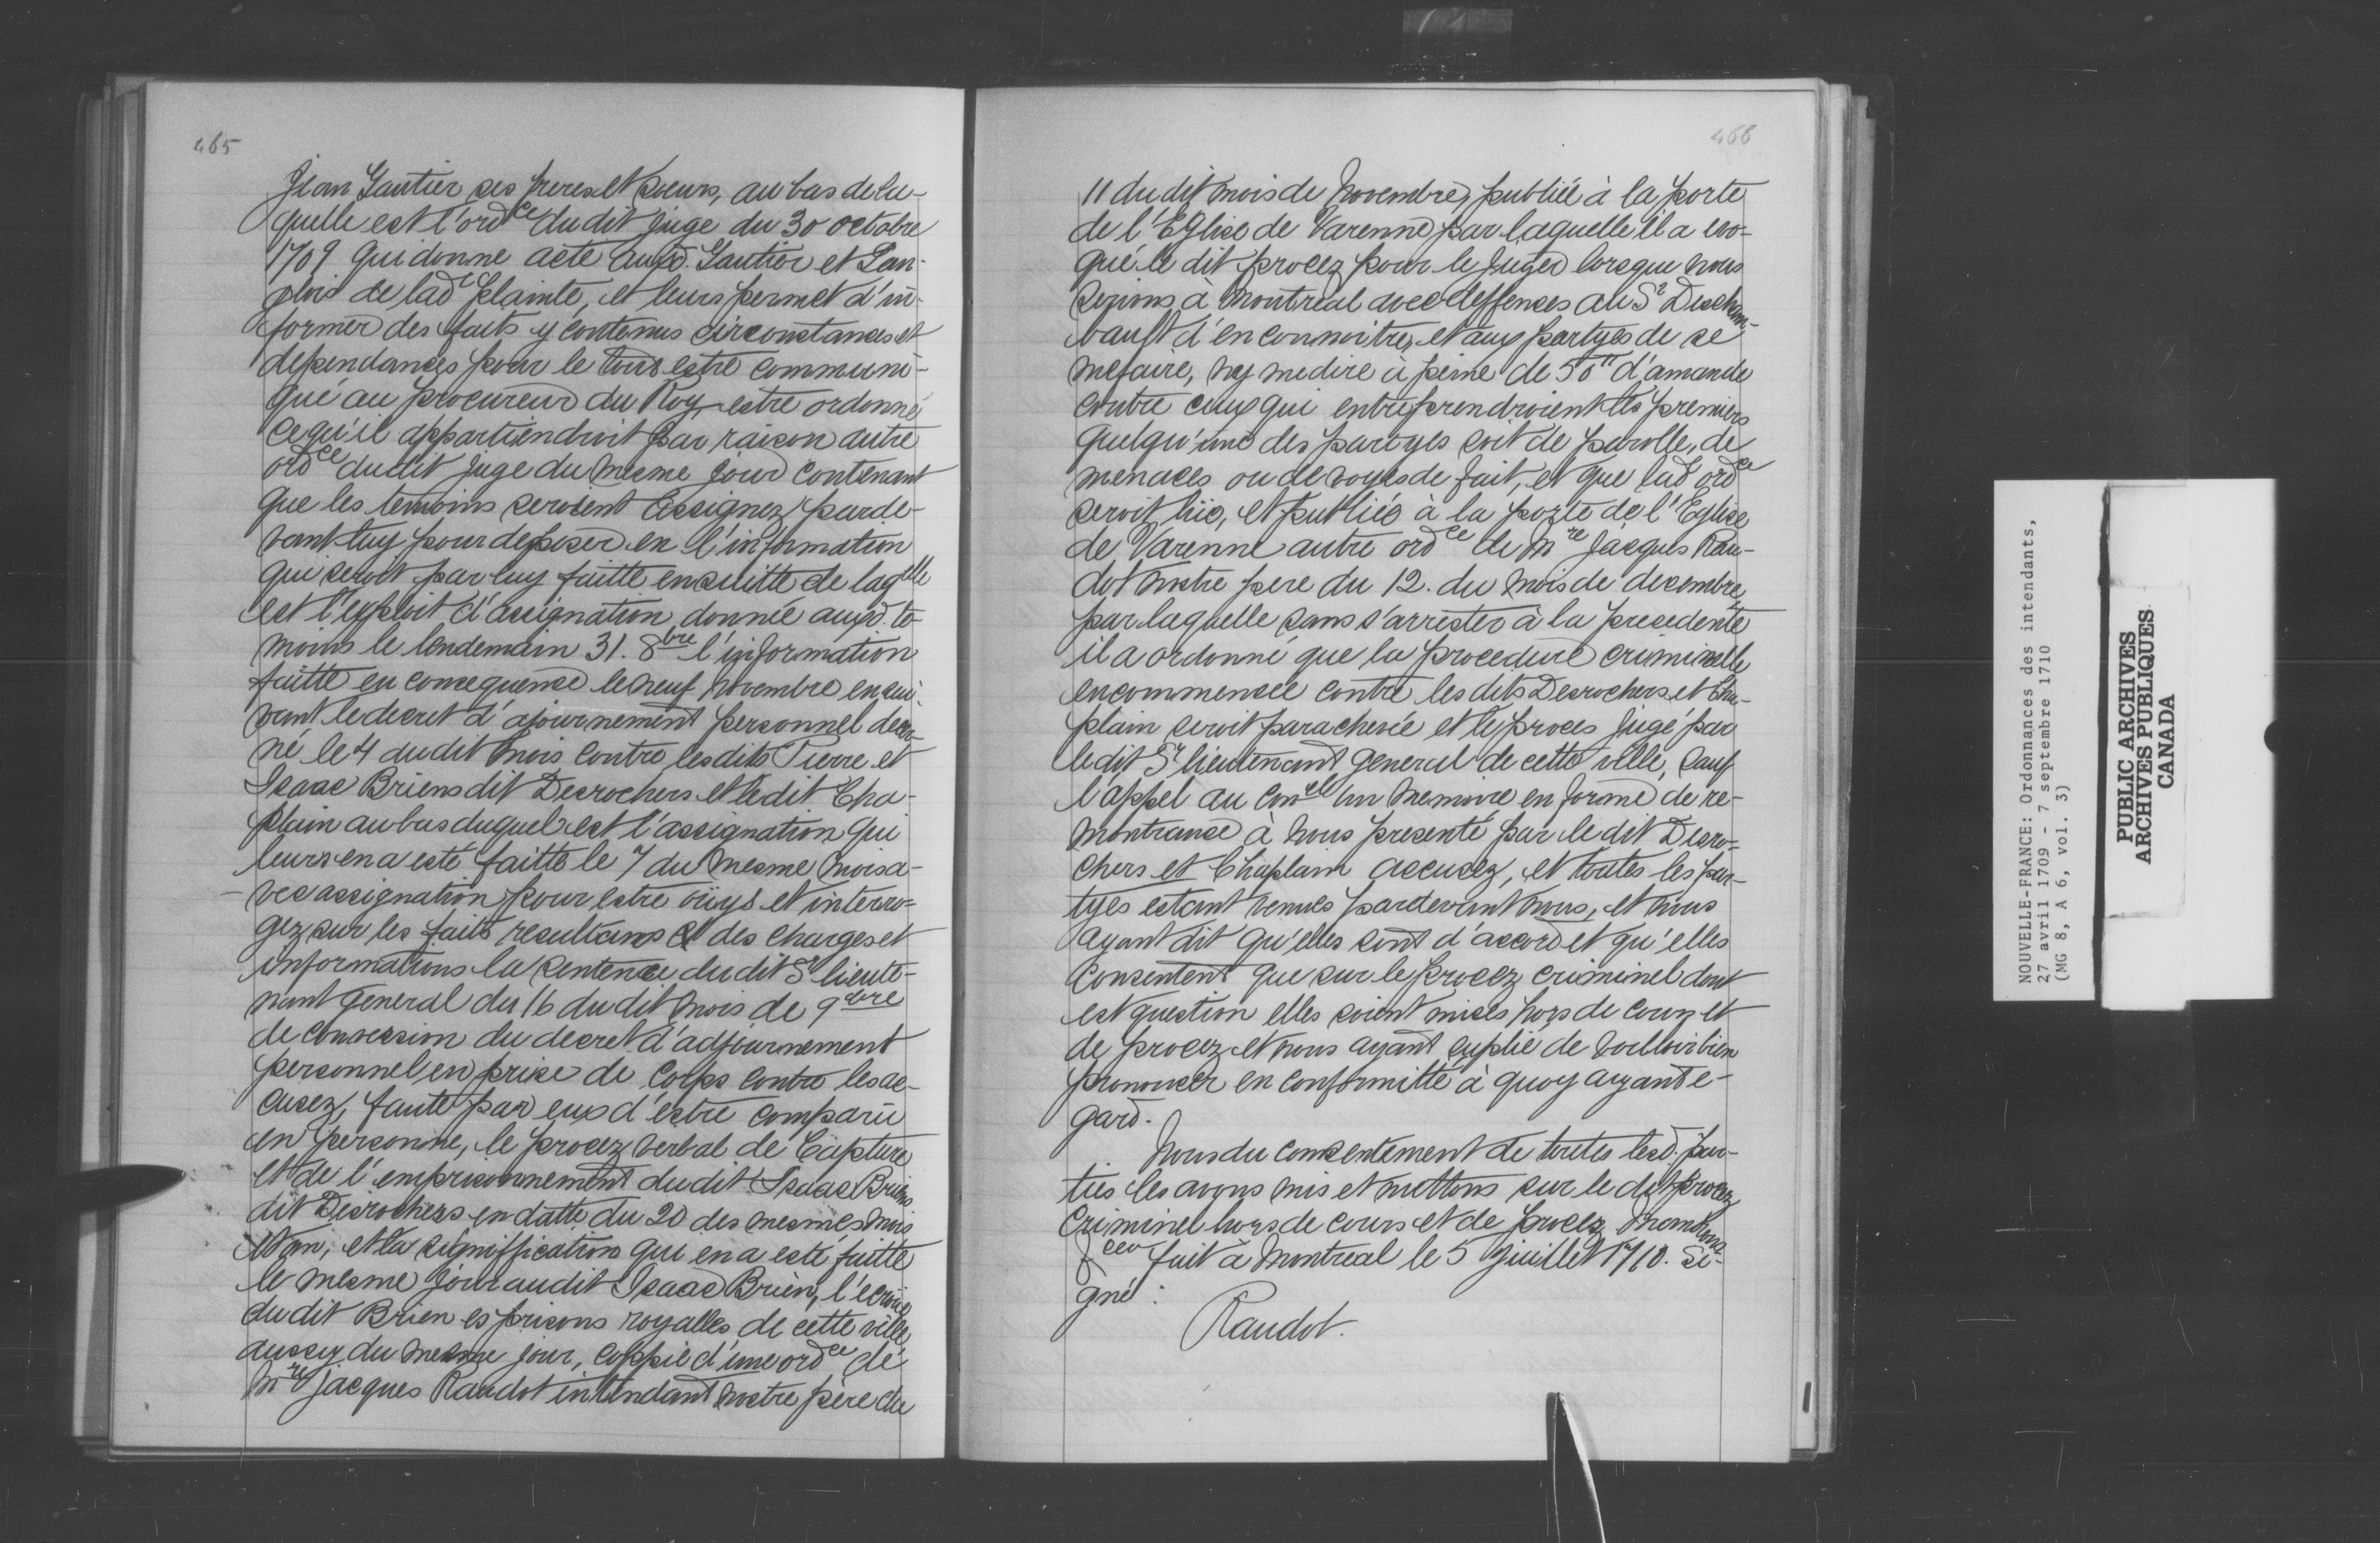 465
Jean Gautier ses freres et soeurs, au bas de la-
quelle est l'ordce dudit Juge du 30 octobre
1709 qui donne acte ausd. Gautier et Lan-
glois de lade plainte, et leurs permet d'in-
former des faits y contenus circonstances et
dependances pour le tout estre communi-
qué au procureur du Roy estre ordonné
ce qu'il appartiendroit par raison autre
ordce dudit Juge du mesme jour contenant
que les temoins seroient assignez parde-
vant luy pour deposer en l'information
qui seroit par luy faitte ensuitte de laqelle
est l'exploit d'assignation donnée ausd. te-
moins le lendemain 31. 8bre l'information
faitte en consequence le neuf novembre ensui-
vant, le decret d'ajournement personnel decer-
né le 4 dudit mois contre lesdits Pierre et
Isaac Briens dit Desrochers et ledit Cha-
plain au bas duquel est l'assignation qui
leurs en a esté faitte le 7 du mesme mois a-
vec assignation pour estre oüys et interro-
gez sur les faits resultans et des charges et
informations la sentence dudit Sr lieute-
nant general du 16 dudit mois de 9bre
de conversion du decret d'adjournement
personnel en prise de corps contre les ac-
cusez, faute par eux d'estre comparu
en personne, le procez verbal de Capture
et de l'emprisonnement dudit Isaac Briens
dit Desrochers en datte du 20 des mesmes mois
et an, et la signiffication qui en a esté faitte
le mesme jour audit Isaac Brien, l'ecroüe
dudit Brien es prisons royalles de cette ville
aussy du mesme jour, coppie d'une ordce de
Mre Jacques Raudot intendant nostre père du
466
11 dudit mois de novembre, publiée à la porte
de l'Eglise de Varenne par laquelle il a evo-
qué le dit procez pour le Juger lorsque nous
serions à Montréal avec deffences au Sr Descham-
bault d'en connoitre, et aux partyes de se
mefaire, ny medire à peine de 50tt d'amande
contre ceux qui entreprendroient les premiers
quelqu'une des partyes soit de parolle, de
menaces ou de voyes de fait, et que lade ordce
seroit lüe, et publiée à la porte de l'Eglise
de Varenne autre ordce de Mre Jacques Rau-
dot nostre pere du 12. du mois de decembre
par laquelle sans s'arrester à la precedente
il a ordonné que la procedure criminelle
encommencée contre lesdits Desrochers et Cha-
plain seroit parachevée et le proces jugé par
ledit Sr lieutenant general de cette ville, sauf
l'appel au Conel un memoire en forme de re-
montrance à nous presenté par le dit Desro-
chers et Chaplain accusez, et toutes les par-
tyes estant venues pardevant nous, et nous
ayant dit qu'elles sont d'accord et qu'elles
consentent que sur le procez criminel dont
est question elles soient mises hors de cour et
de procez et nous ayant suplié de voulloir bien
prononcer en conformitté à quoy ayant e-
gard.
Nous du consentement de toutes lesd. par-
ties les avons mis et mettons sur le dit procez
criminel hors de cours et de procez Mandons
&cea fait à Montreal le 5 juillet 1710. Si-
gné :
Raudot.
NOUVELLE-FRANCE: Ordonnances des intendants,
27 avril 1709 - 7 septembre 1710
(MG 8, A 6, vol. 3)
PUBLIC ARCHIVES
ARCHIVES PUBLIQUES
CANADA